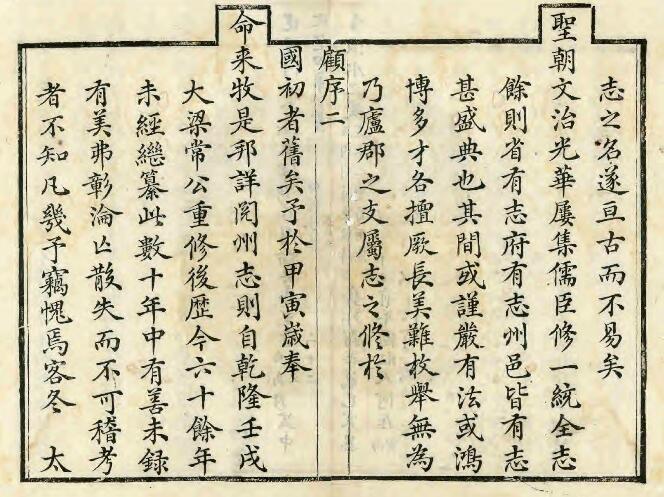 志之名遂亘古而不易矣
聖朝文治光華屢集儒臣修一統全志
餘則省有志府有志州邑皆有志
甚盛典也其間或謹嚴有法或鴻
博多才各擅厥長美難枚舉無為
乃廬郡之支屬志之修於
顧序二
國初者舊矣予於甲寅歲奉
命来牧是邦詳閱州志則自乾隆壬戌
大梁常公重修後歷今六十餘年
未經繼纂此數十年中有善未録
有美弗彰淪亾散失而不可稽考
者不知凡幾予竊愧焉客冬 太